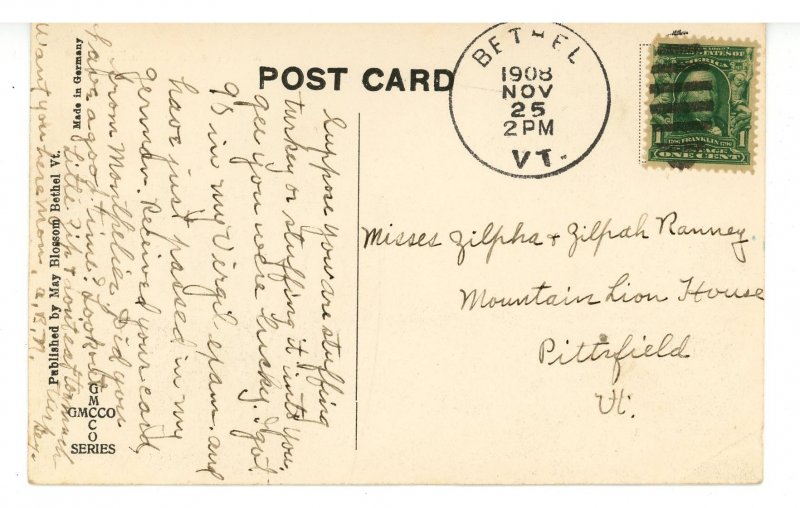 POST CARD
BETHEL
1908
NOV
25
2 PM
VT.
UNITED STATES OF
AMERICA
1
FRANKLIN
1
POSTAGE
ONE CENT
Misses Zilpha + Zilpah Ranney
Mountain Lion House
Pittsfield
Vt.
Suppose you are stuffing
turkey or stuffing it into you.
gee you were lucky. I got
98 in my Virgil exam. and
have just passed in my
german. Received your card
from Montpelier. Did you
have a good time? Look out
little Zilp +
Want you here Mon. A.R.M.
Made in Germany
Published by May Blossom Bethel Vt.
GMCCO
SERIES